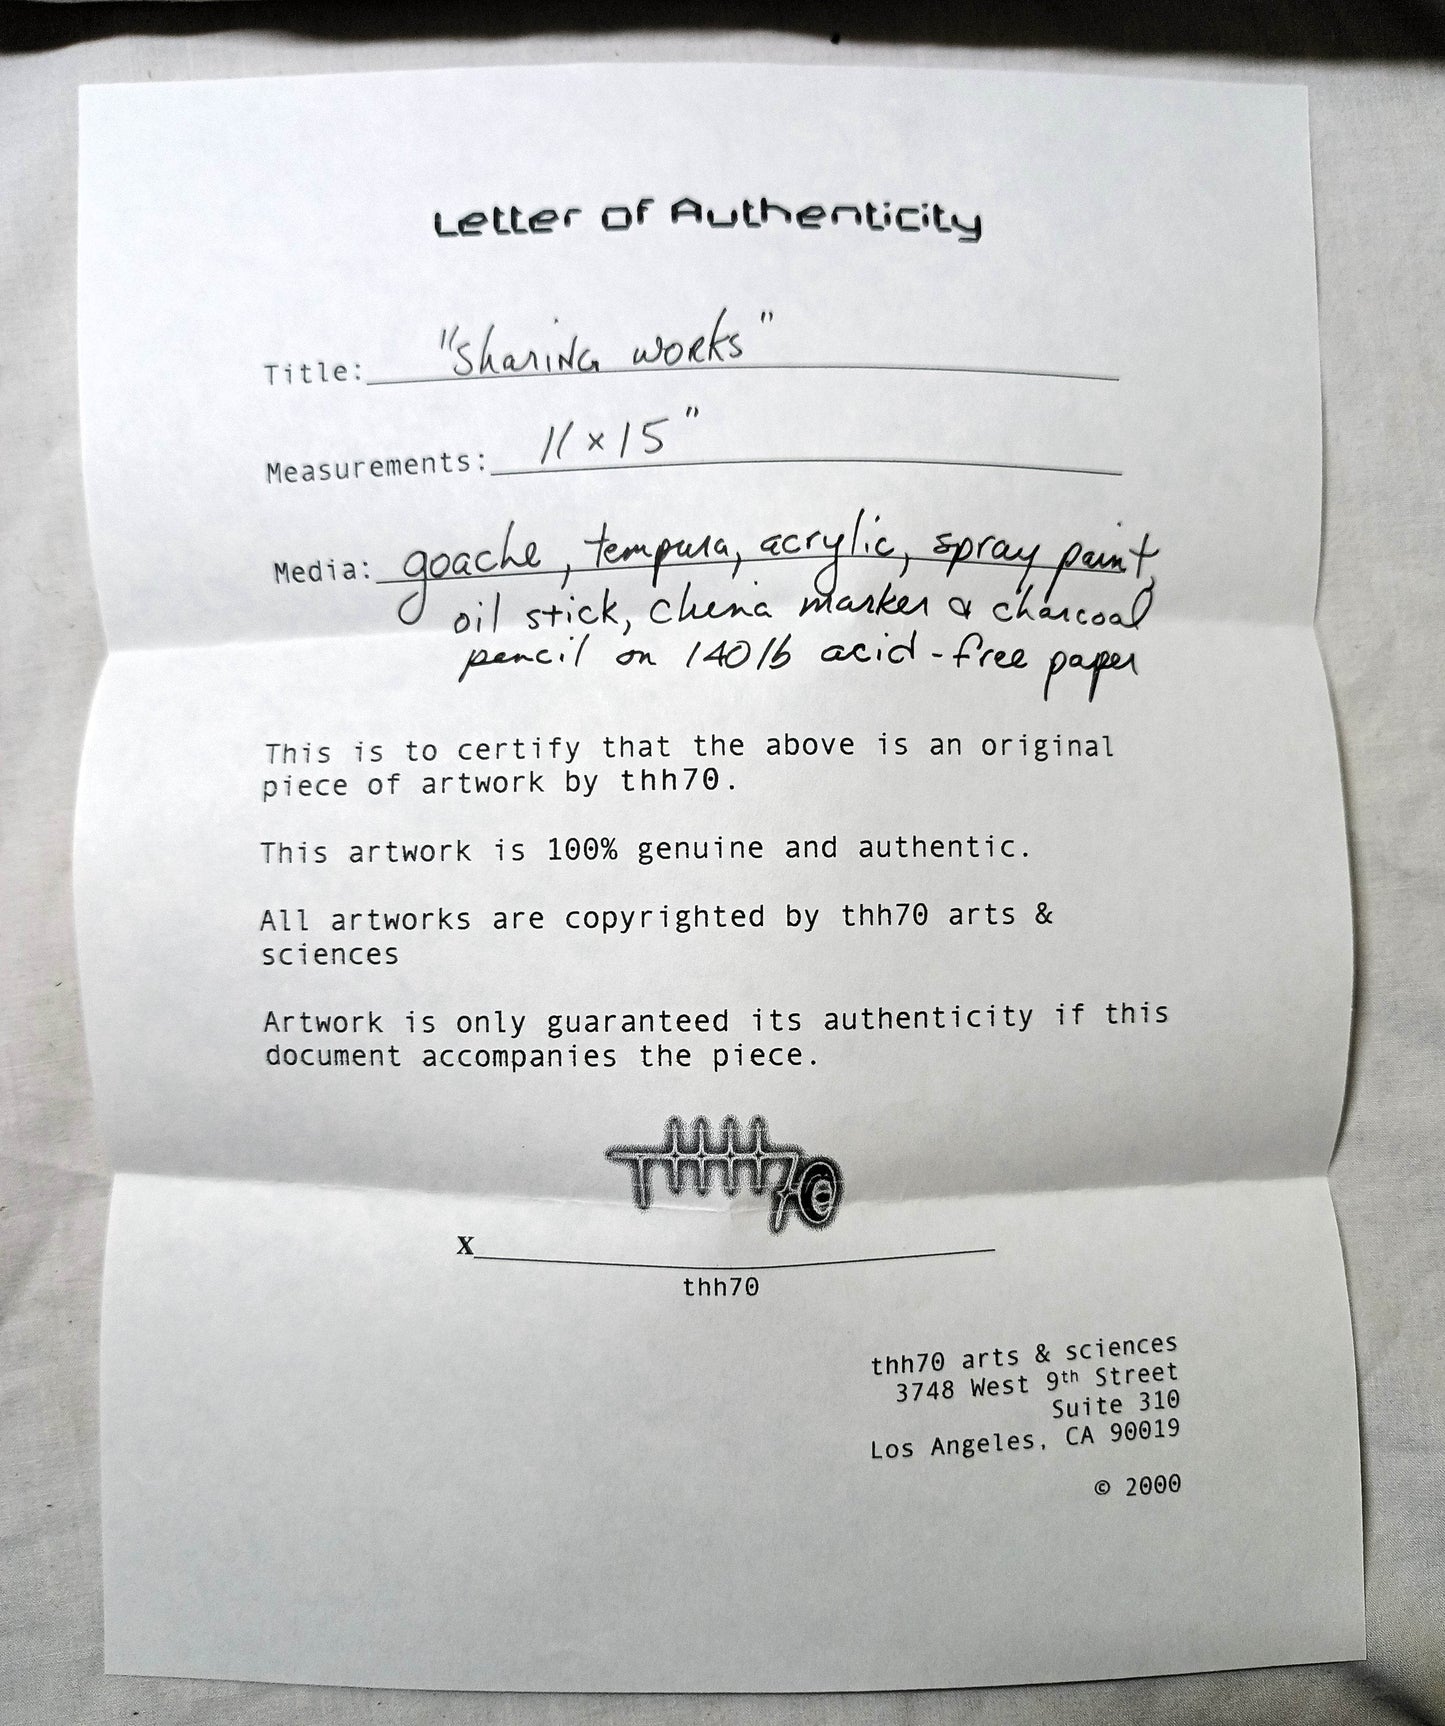 Letter of Authenticity
Title: "Sharing works"
Measurements: 11 x 15"
Media: goache, tempura, acrylic, spray paint,
oil stick, china marker & charcoal
pencil on 140 lb acid-free paper
This is to certify that the above is an original
piece of artwork by thh70.
This artwork is 100% genuine and authentic.
All artworks are copyrighted by thh70 arts &
sciences
Artwork is only guaranteed its authenticity if this
document accompanies the piece.
THH70
X
thh70
thh70 arts & sciences
3748 West 9th Street
Suite 310
Los Angeles, CA 90019
© 2000